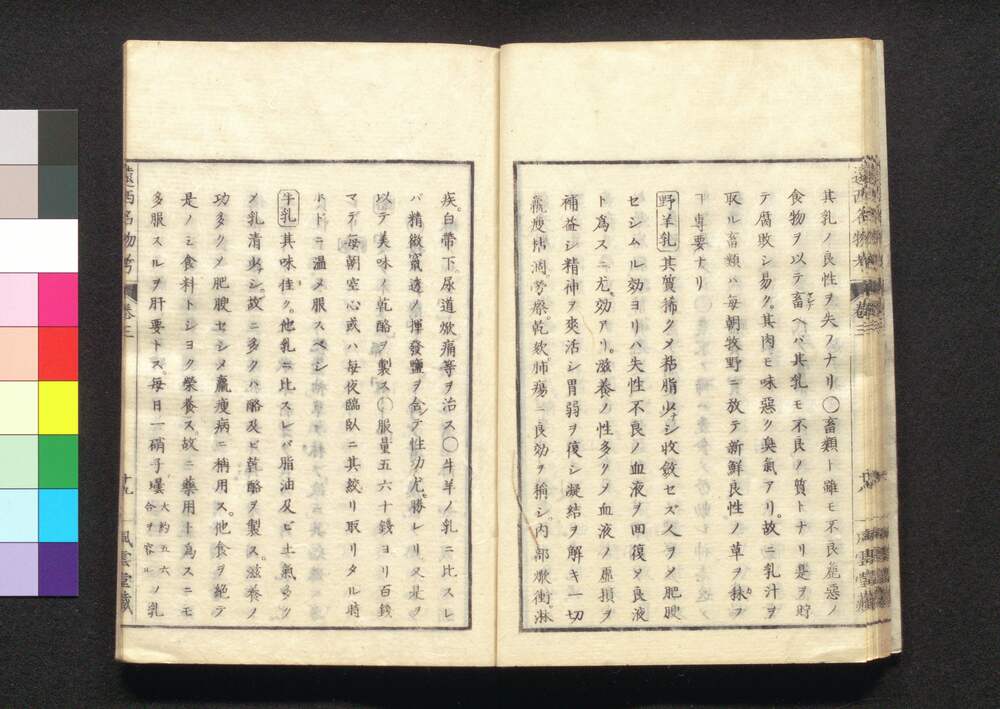 其乳ノ良性ヲ失フナリ〇畜類ト雖モ不良麁惡ノ
食物ヲ以テ畜ヘバ其乳モ不良ノ質トナリ是ヲ貯
テ腐敗シ易ク。其肉モ味惡ク臭氣アリ。故ニ乳汁ヲ
取ル畜類ハ毎朝牧野ニ放テ新鮮良性ノ草ヲ秣フ
ヿ專要ナリ
野羊乳 其質稀クメ粘脂少シ收斂セズ人ヲメ肥腴
セシムル効ヨリハ失性不良ノ血液ヲ囬復メ良液
ト爲スニ尤効アリ。滋養ノ性多クメ血液ノ虚損ヲ
補益シ精神ヲ爽活シ胃弱ヲ復シ凝結ヲ解キ一切
羸瘦 勞瘵。乾欬。肺瘍ニ良効ヲ稱シ。内部焮衝。淋
疾。白帶下。尿道焮痛等ヲ治ス〇牛羊ノ乳ニ比スレ
バ精微竄透ノ揮發鹽ヲ含テ性功尤勝レリ又是ヲ
以テ美味ノ乾酪ヲ製ス〇服量五六十錢ヨリ百錢
マデ毎朝空心或ハ毎夜臨臥ニ其絞リ取リタル時
トドニ温メ服スベシ
牛乳 其味佳ク。他乳ニ比スレバ脂油及ビ土氣多ク
メ乳清少シ。故ニ多クハ酪及ビ乾酪ヲ製ス。滋養ノ
功多クメ肥腴セシメ羸瘦病ニ稱用ス。他食ヲ絶テ
是ノミ食料トシヨク榮養ス。故ニ藥用ト爲スニモ
多服スルヲ肝要トス。毎日一硝子壜 大約五六合ヲ容ル ノ乳
遠西名物考 卷三
十九 風雲堂藏